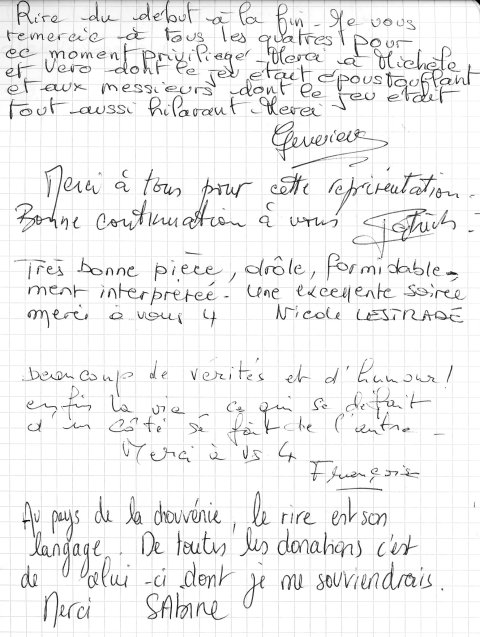 Rire du début à la fin. Je vous
remercie à tous les quatres pour
ce moment privilège. Merci à Michèle
et Vero dont le jeu était époustouflant
et aux messieurs dont le jeu était
tout aussi hilarant. Merci
Geneviève
Merci à tous pour cette représentation.
Bonne continuation à vous Patrick.
Très bonne pièce, drôle, formidable-
ment interprétée. Une excellente soirée
merci à vous 4 Nicole LESTRADE
beaucoup de vérités et d'humour!
enfin la vie, ce qui se défait
d'un côté se fait de l'autre.
Merci à vs 4
Françoise
Au pays de la chouvénie, le rire est son
langage. De toutes les donations c'est
de celui-ci dont je me souviendrais.
Merci SABINE